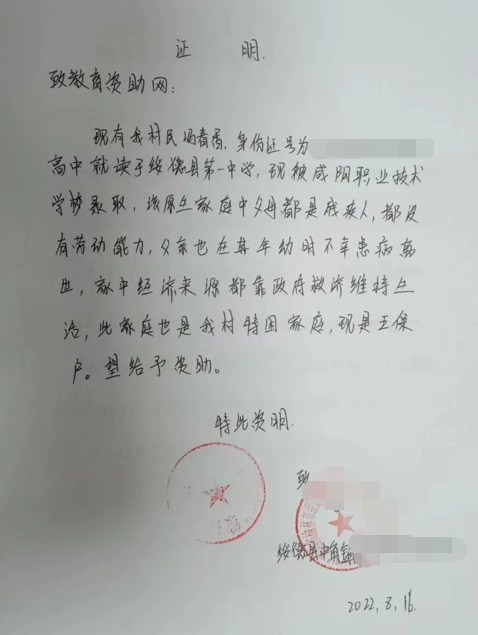 证 明.
致教育资助网:
现有我村民冯春香,身份证号为
高中就读于绥德县第一中学,现被咸阳职业技术
学校录取,该原生家庭中父母都是残疾人,都没
有劳动能力,父亲也在其年幼时不幸患病离
世,家中经济来源都靠政府救济维持生
活,此家庭也是我村特困家庭,现是五保
户。望给予资助。
特此证明.
致
绥德县中角镇
2022.8.16.